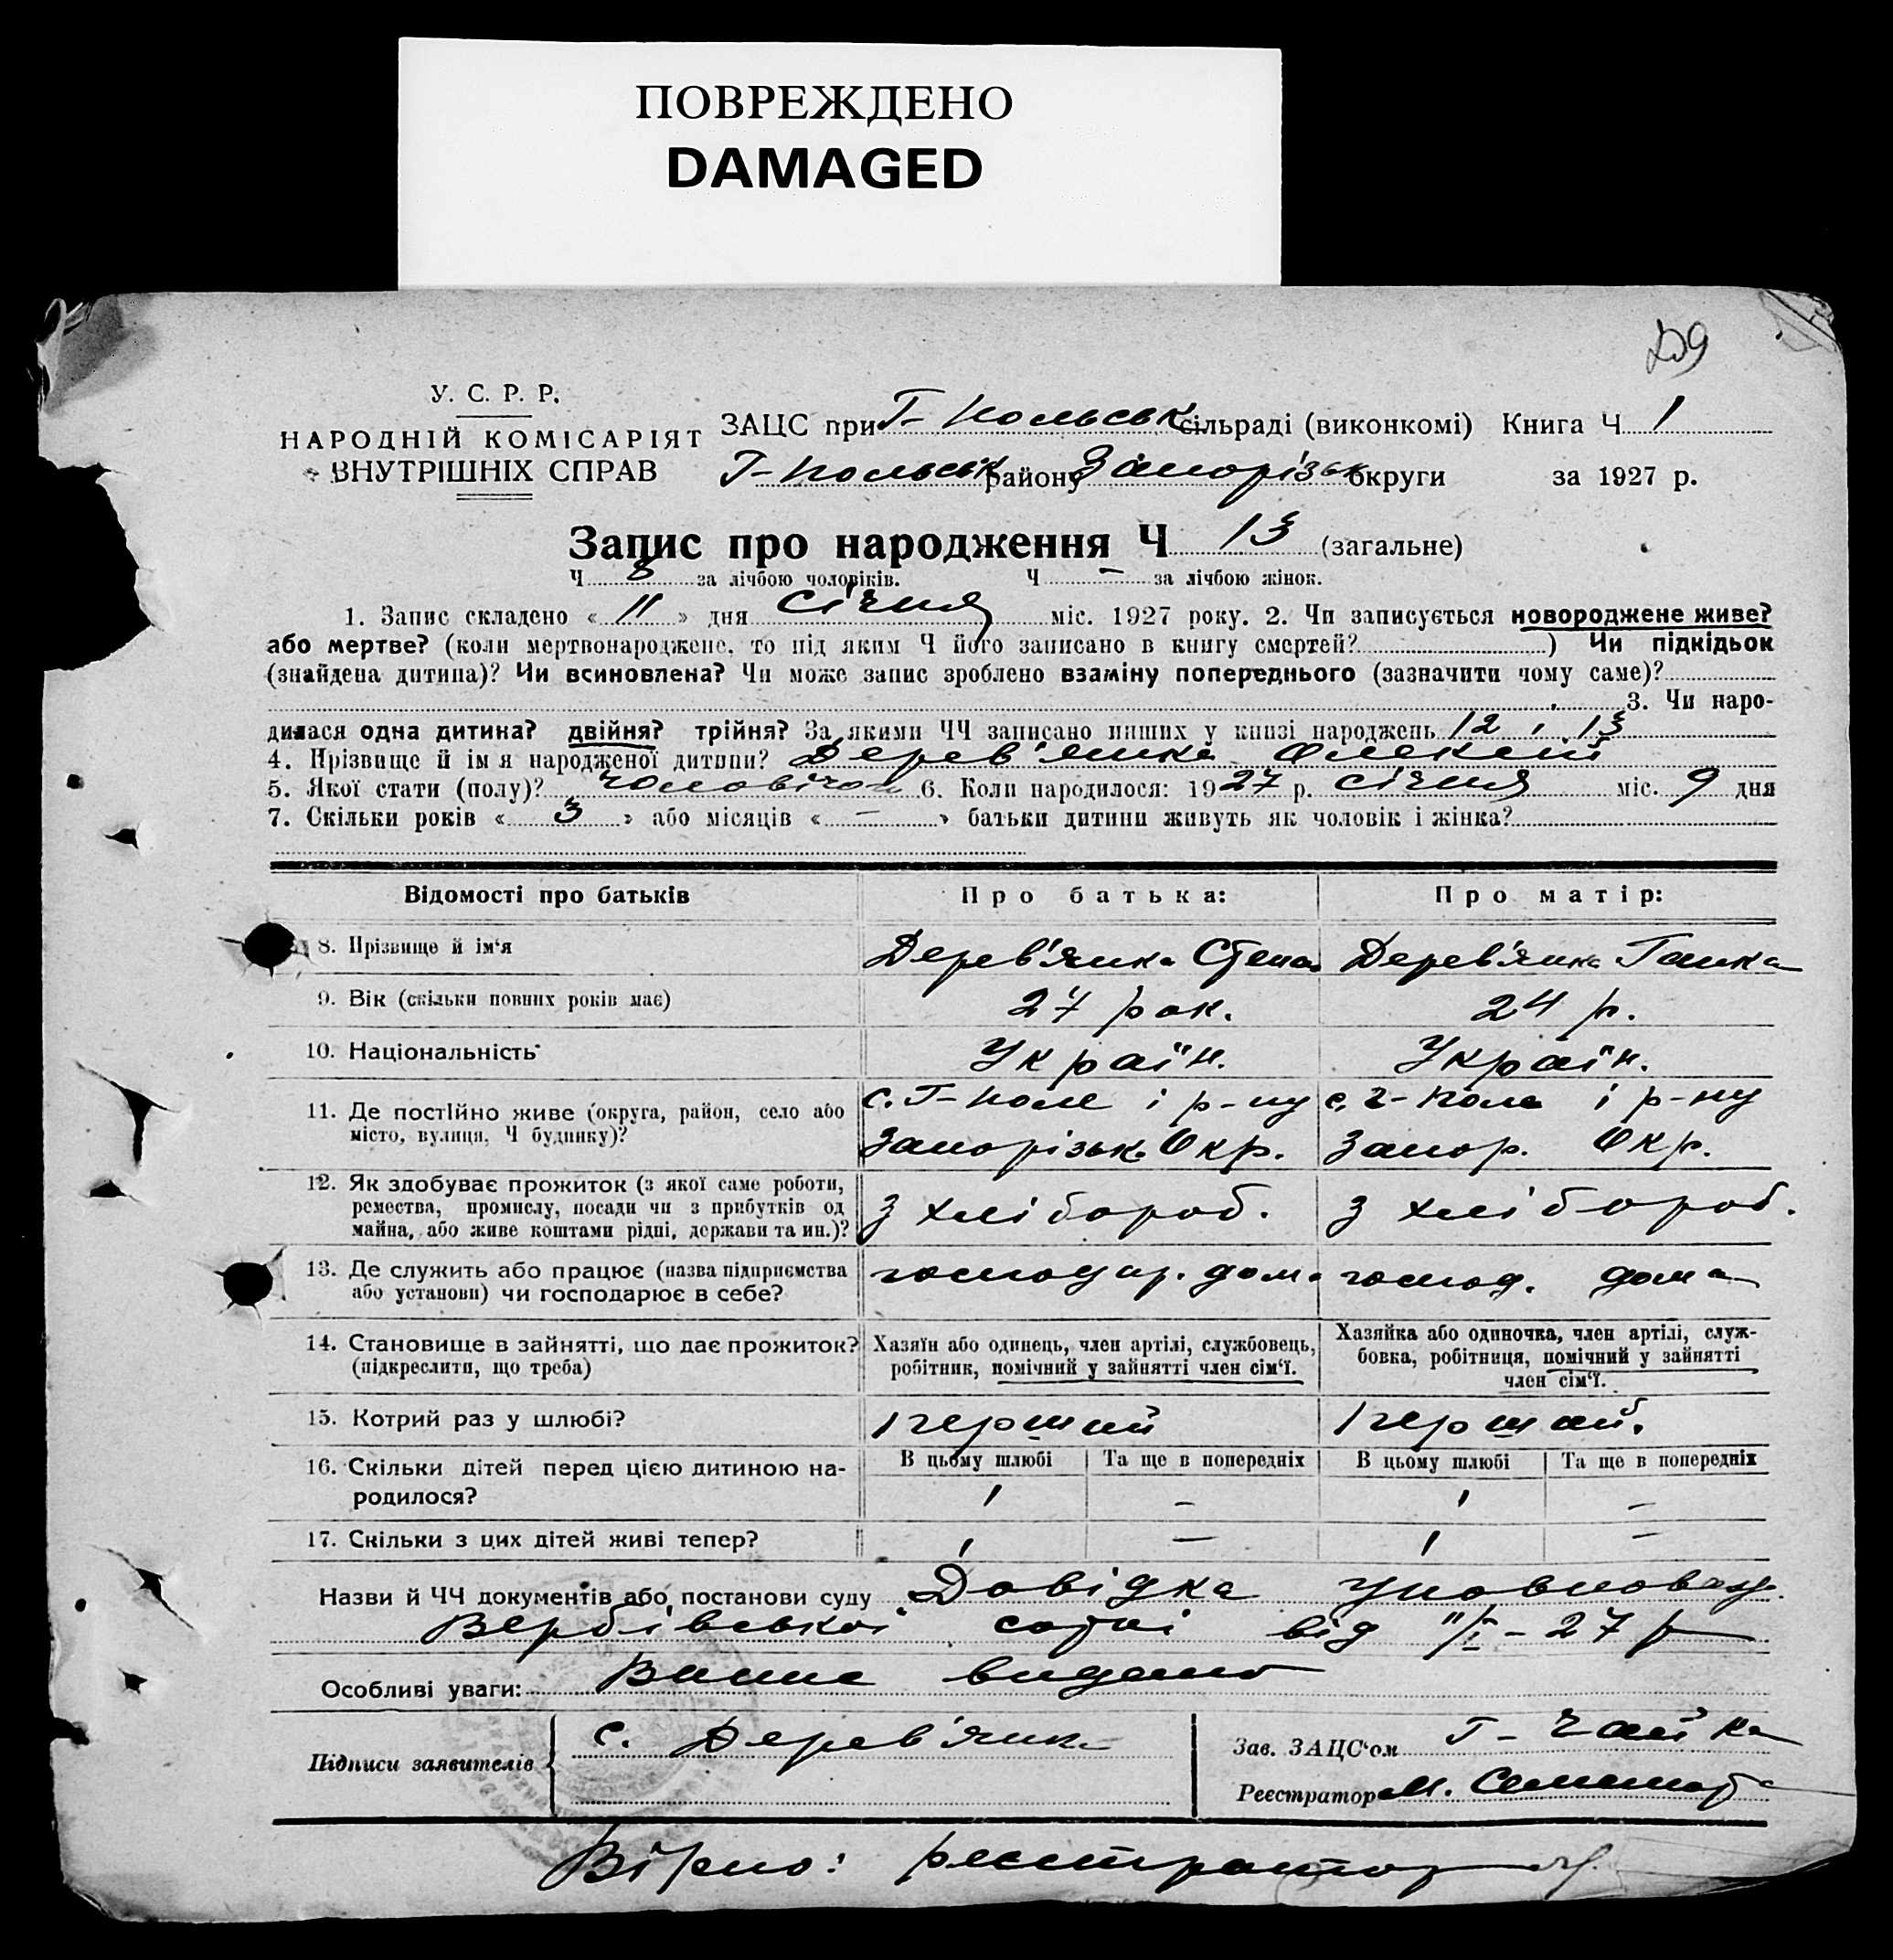 ПОВРЕЖДЕНО
DAMAGED
У. С. Р. Р.
НАРОДНІЙ КОМІСАРІЯТ
ВНУТРІШНІХ СПРАВ
ЗАЦС при Г-Польськ сільраді (виконкомі) Книга Ч 1
Г-Польськ району Запорізьк округи за 1927 р.
Запис про народження Ч 13 (загальне)
Ч 8 за лічбою чоловіків. Ч – за лічбою жінок.
1. Запис складено « 11 » дня Січня міс. 1927 року. 2. Чи записується новороджене живе?
або мертве? (коли мертвонароджене, то під яким Ч його записано в книгу смертей? ) Чи підкідьок
(знайдена дитина)? Чи всиновлена? Чи може запис зроблено взаміну попереднього (зазначити чому саме)?
3. Чи наро-
дилася одна дитина? двійня? трійня? За якими ЧЧ записано инших у книзі народжень 12 і 13
4. Прізвище й ім я народженої дитини? Дерев'янко Олексій
5. Якої стати (полу)? чоловічої 6. Коли народилося: 1927 р. січня міс. 9 дня
7. Скільки років « 3 » або місяців « – » батьки дитини живуть як чоловік і жінка?
Відомості про батьків Про батька: Про матір:
8. Прізвище й ім'я Дерев'янко Степан Дерев'янко Ганка
9. Вік (скільки повних років має) 27 рок. 24 р.
10. Національність Україн. Україн.
11. Де постійно живе (округа, район, село або с. Г-Поле і р-ну с. Г-Поле і р-ну
місто, вулиця, Ч будинку)? Запорізьк. Окр. Запор. Окр.
12. Як здобуває прожиток (з якої саме роботи,
ремества, промислу, посади чи з прибутків од з хлібороб. з хлібороб.
майна, або живе коштами рідні, держави та ин.)?
13. Де служить або працює (назва підприємства господар. дома господ. дома
або установи) чи господарює в себе?
14. Становище в зайнятті, що дає прожиток? Хазяїн або одинець, член артілі, службовець, Хазяйка або одиночка, член артілі, служ-
(підкреслити, що треба) робітник, помічний у зайнятті член сім'ї. бовка, робітниця, помічний у зайнятті
член сім'ї.
15. Котрий раз у шлюбі? 1 перший 1 перший.
16. Скільки дітей перед цією дитиною на- В цьому шлюбі Та ще в попередніх В цьому шлюбі Та ще в попередніх
родилося? 1 – 1 –
17. Скільки з цих дітей живі тепер? 1 – 1 –
Назви й ЧЧ документів або постанови суду Довідка уповноваж.
Вербівської сотні від 11/I – 27 р
Особливі уваги: видано
Підписи заявителів С. Дерев'янко Зав. ЗАЦС'ом Г- Чайка
Реєстратор М.
Вірно: реєстратор